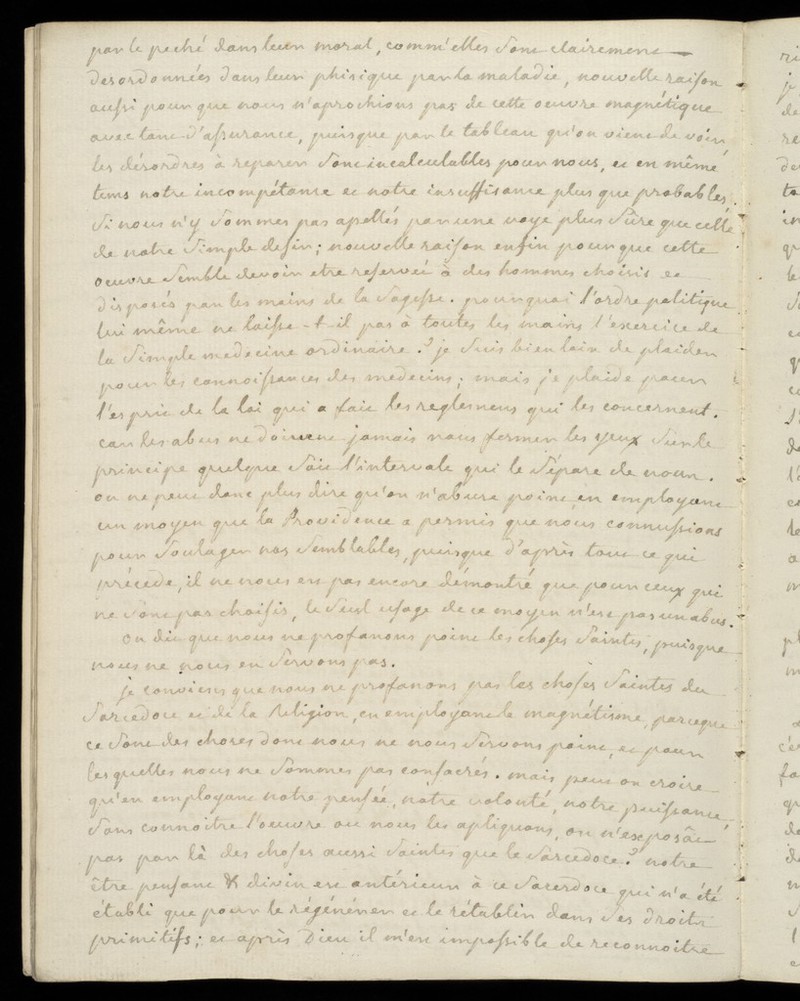 par le peché dans leur moral, comm'elles sont clairement
desordonnées dans leur phisique par la maladie, nouvelle raison
aussi pour que nous n'aprochions pas de cette oeuvre magnétique
avec tant d'assurance, puisque par le tableau qu'on vient de voir,
les désordres à reparer sont incalculables pour nous, et en même
tems notre incompétance et notre insuffisance plus que probables,
si nous n'y sommes pas apellés par une voye plus sûre que celle
de notre simple desir; nouvelle raison enfin pour que cette
oeuvre semble devoir etre reservée à des hommes choisis et
disposés par les mains de la sagesse. pourquoi l'ordre politique
lui même ne laisse-t-il pas à toutes les mains l'exercice de
la simple medecine ordinaire? je suis bien loin de plaider
pour les connoissances des medecins; mais je plaide pour
l'esprit de la loi qui a fait les reglemens qui les concernent.
car les abus ne doivent jamais nous fermer les yeux sur le
principe quelque soit l'intervale qui le sépare de nous.
on ne peut donc plus dire qu'on n'abuse point en employant
un moyen que la Providence a permis que nous connussions
pour soulager nos semblables, puisque d'après tout ce qui
précede, il ne nous est pas encore démontré que pour ceux qui
ne sont pas choisis, le seul usage de ce moyen n'est pas un abus.
on dit que nous ne profanons point les choses saintes, puisque
nous ne nous en servons pas.
je conviens que nous ne profanons pas les choses saintes du
sarcedoce et de la Religion, en employant le magnétisme, parceque
ce sont des choses dont nous ne nous servons point, et pour
lesquelles nous ne sommes pas consacrés. mais peut on croire
qu'en employant notre pensée, notre volonté, notre puissance,
sans connoitre l'oeuvre où nous les apliquons, on n'exposât
pas par là des choses aussi saintes que le sarcedoce? notre
être pensant & divin est antérieur à ce sacerdoce qui n'a été
établi que pour le régénérer et le rétablir dans ses droits
primitifs; et après Dieu il m'est impossible de reconnoitre